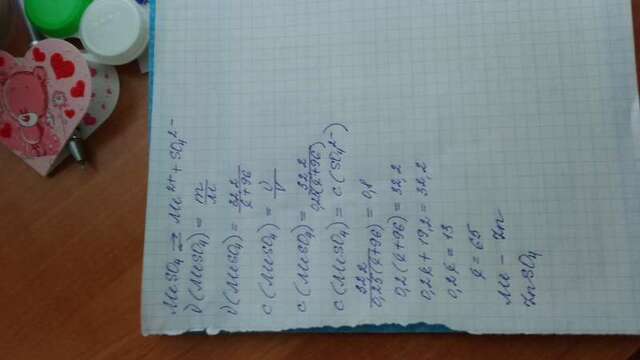 MeSO₄ ⇄ Me²⁺ + SO₄²⁻
ν(MeSO₄) = m/M
ν(MeSO₄) = 32,2/x+96
c(MeSO₄) = ν/V
c(MeSO₄) = 32,2/0,25(x+96)
c(MeSO₄) = c(SO₄²⁻)
32,2/0,25(x+96) = 0,8
0,2(x+96) = 32,2
0,2x + 19,2 = 32,2
0,2x = 13
x = 65
Me – Zn
ZnSO₄